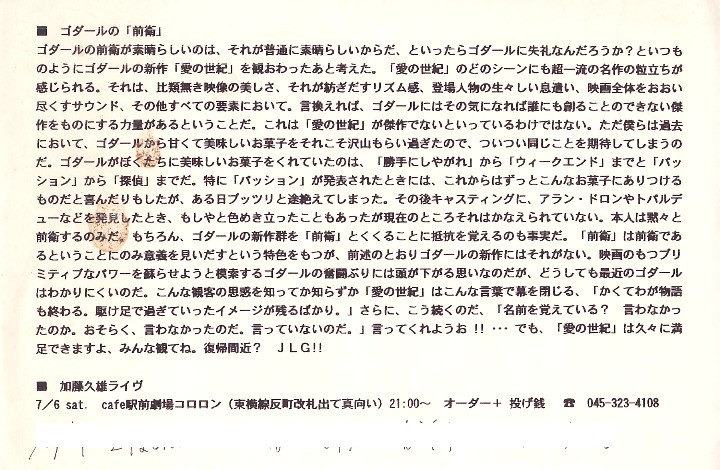 ■ ゴダールの「前衛」
ゴダールの前衛が素晴らしいのは、それが普通に素晴らしいからだ、といったらゴダールに失礼なんだろうか？といつも
のようにゴダールの新作「愛の世紀」を観おわったあと考えた。「愛の世紀」のどのシーンにも超一流の名作の粒立ちが
感じられる。それは、比類無き映像の美しさ、それが紡ぎだすリズム感、登場人物の生々しい息遣い、映画全体をおおい
尽くすサウンド、その他すべての要素において。言換えれば、ゴダールにはその気になれば誰にも創ることのできない傑
作をものにする力量があるということだ。これは「愛の世紀」が傑作でないといっているわけではない。ただ僕らは過去
において、ゴダールから甘くて美味しいお菓子をそれこそ沢山もらい過ぎたので、ついつい同じことを期待してしまうの
だ。ゴダールがぼくたちに美味しいお菓子をくれていたのは、「勝手にしやがれ」から「ウィークエンド」までと「パッ
ション」から「探偵」までだ。特に「パッション」が発表されたときには、これからはずっとこんなお菓子にありつける
ものだと喜んだりもしたが、ある日プッツリと途絶えてしまった。その後キャスティングに、アラン・ドロンやドパルデ
ューなどを発見したとき、もしやと色めき立ったこともあったが現在のところそれはかなえられていない。本人は黙々と
前衛するのみだ。もちろん、ゴダールの新作群を「前衛」とくくることに抵抗を覚えるのも事実だ。「前衛」は前衛であ
るということにのみ意義を見いだすという特色をもつが、前述のとおりゴダールの新作にはそれがない。映画のもつプリ
ミティブなパワーを蘇らせようと模索するゴダールの奮闘ぶりには頭が下がる思いなのだが、どうしても最近のゴダール
はわかりにくいのだ。こんな観客の思惑を知ってか知らずか「愛の世紀」はこんな言葉で幕を閉じる、「かくてわが物語
も終わる。駆け足で過ぎていったイメージが残るばかり。」さらに、こう続くのだ、「名前を覚えている？　言わなかっ
たのか。おそらく、言わなかったのだ。言っていないのだ。」言ってくれようお !! ･･･ でも、「愛の世紀」は久々に満
足できますよ、みんな観てね。復帰間近？　ＪＬＧ!!
■ 加藤久雄ライヴ
7/6 sat. cafe駅前劇場コロロン（東横線反町改札出て真向い）21:00～ オーダー＋ 投げ銭 ☎ 045-323-4108